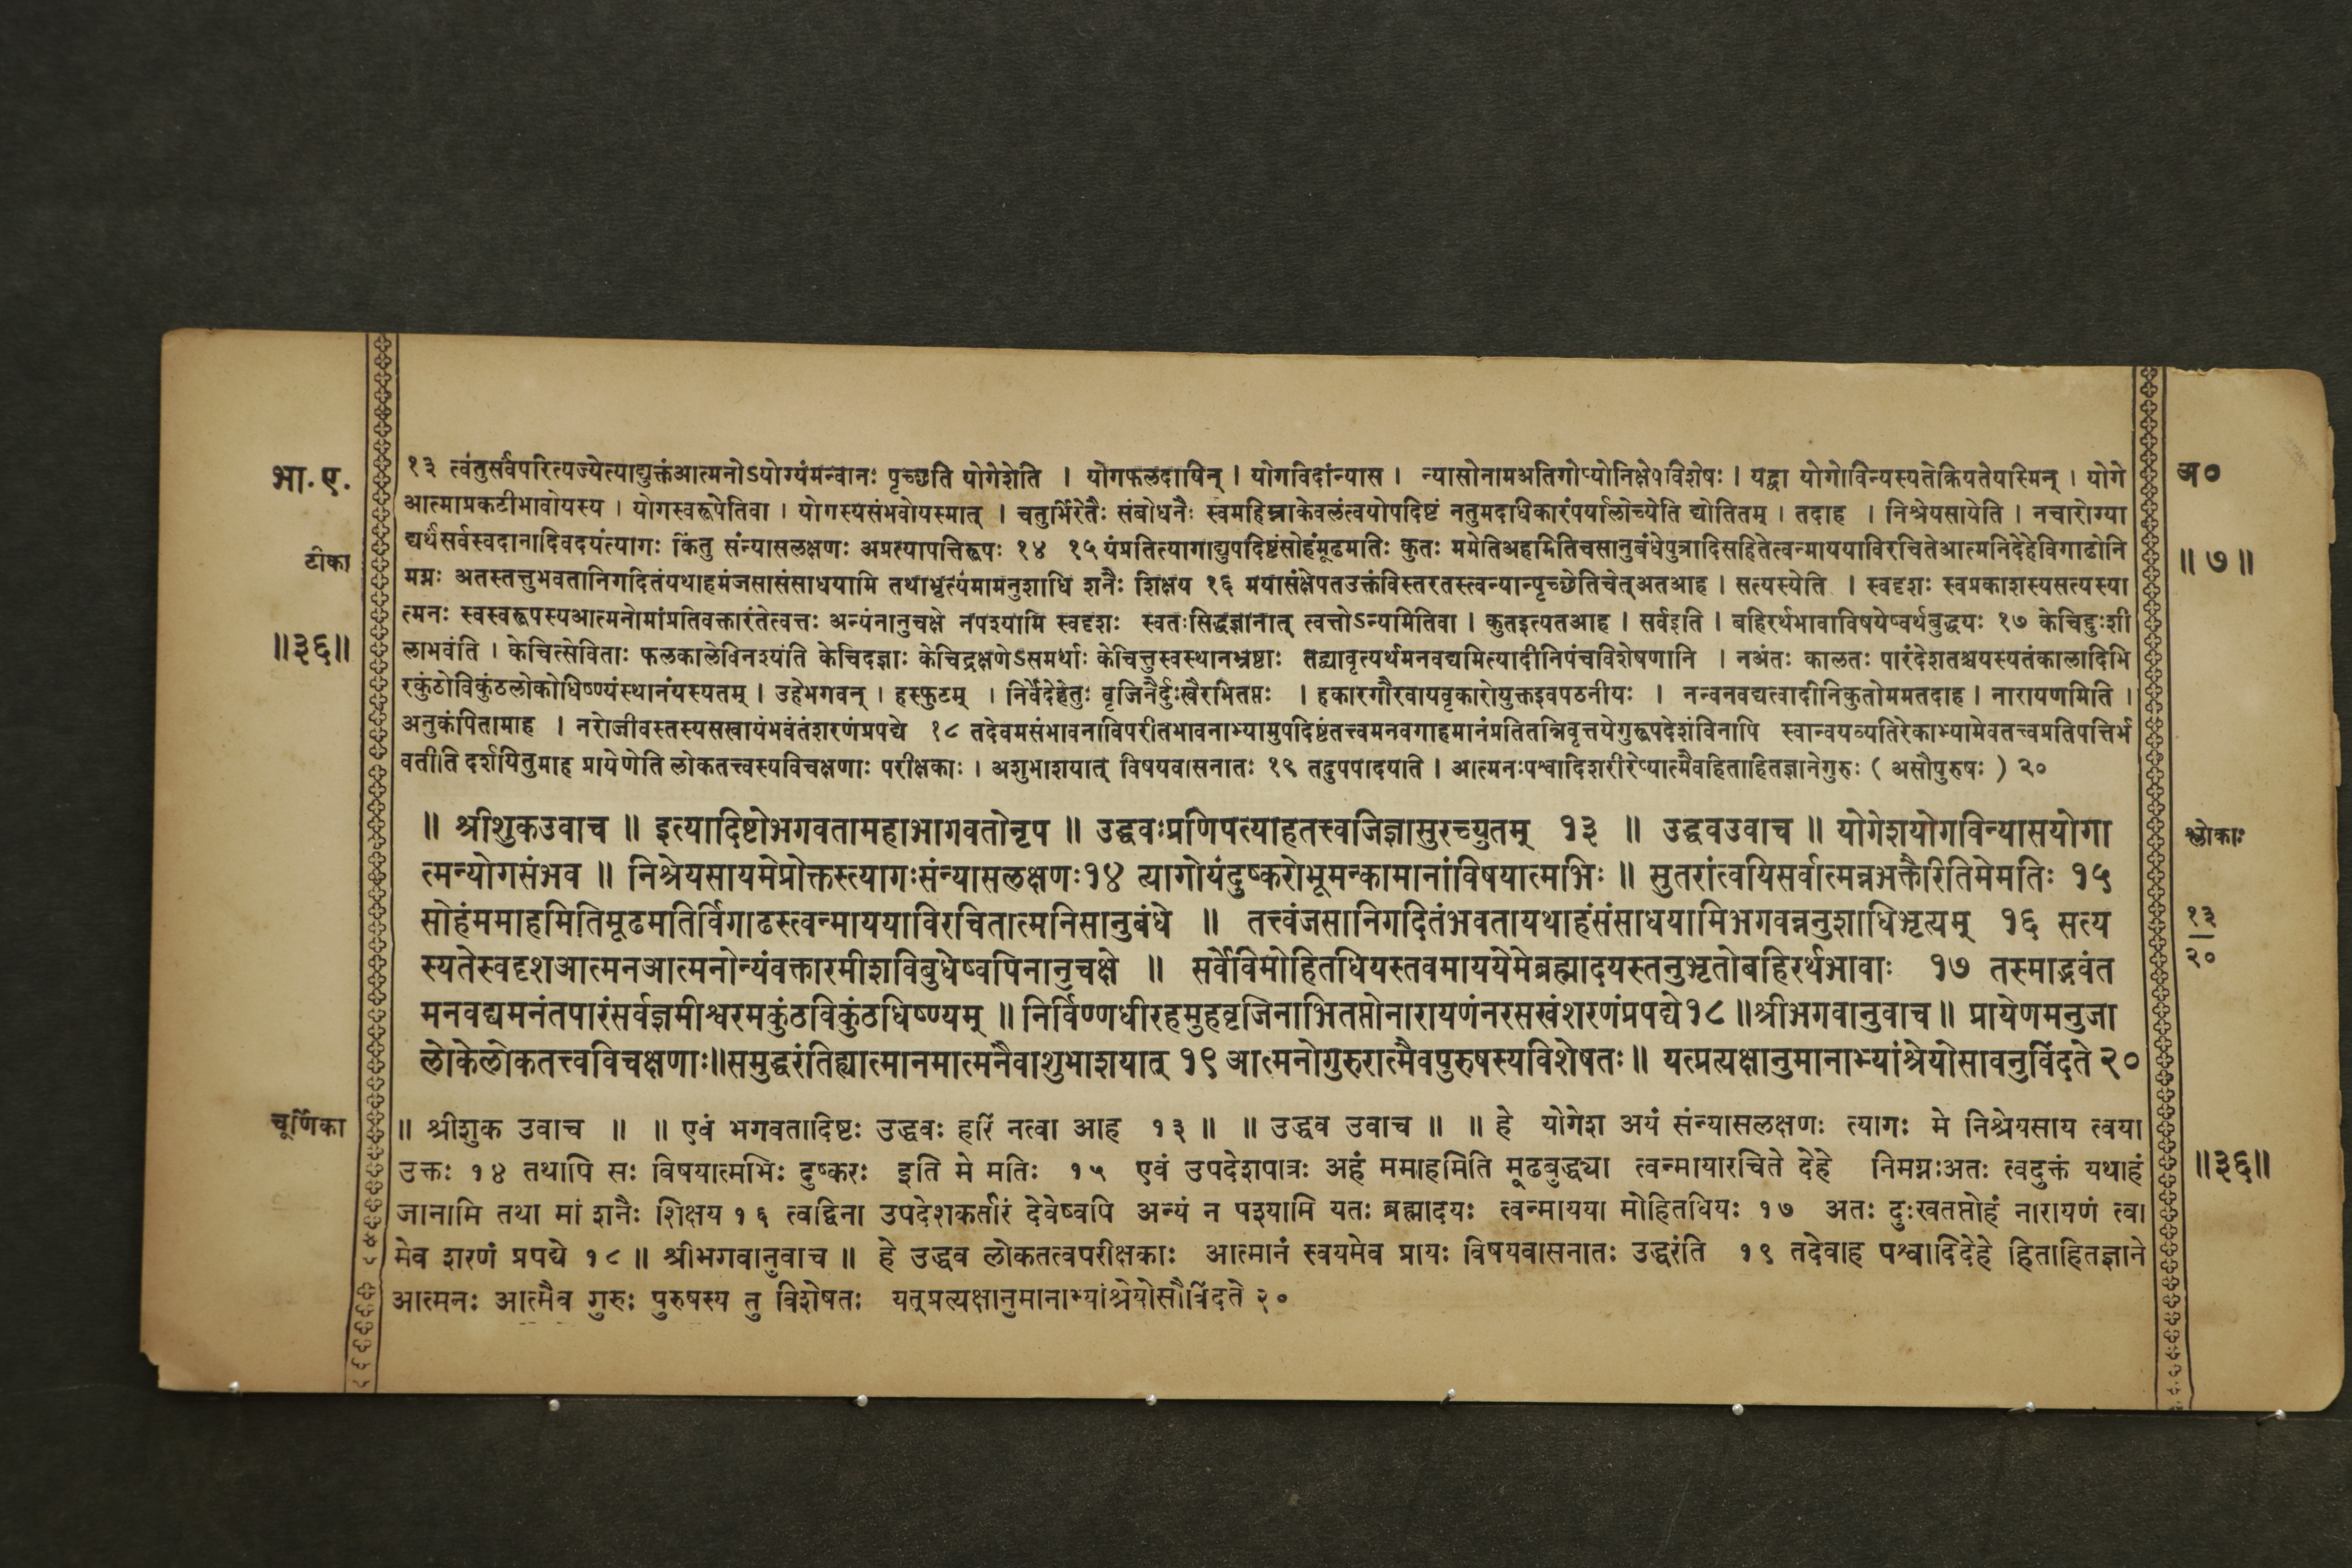 भा. ए.
टीका
॥३६॥
१३ त्वंतुसर्वपरित्यज्येत्याद्युक्तंआत्मनोऽयोग्यंमन्वानः पृच्छति योगेशेति । योगफलदायिन् । योगविदांन्यास । न्यासोनामअतिगोप्योनिक्षेपविशेषः । यद्वा योगोविन्यस्यतेक्रियतेयस्मिन् । योगे
आत्माप्रकटीभावोयस्य । योगस्वरूपेतिवा । योगस्यसंभवोयस्मात् । चतुर्भिरेतैः संबोधनैः स्वमहिम्नाकेवलंत्वयोपदिष्टं नतुमदाधिकारंपर्यालोच्येति द्योतितम् । तदाह । निश्रेयसायेति । नचारोग्या
द्यर्थंसर्वस्वदानादिवदयंत्यागः किंतु संन्यासलक्षणः अप्रत्यापत्तिरूपः १४ १५ यंप्रतित्यागाद्युपदिष्टंसोहंमूढमतिः कुतः ममेतिअहमितिचसानुबंधेपुत्रादिसहितेत्वन्माययाविरचितेआत्मनिदेहेविगाढोनि
मग्नः अतस्तत्तुभवतानिगदितंयथाहमंजसासंसाधयामि तथाभृत्यंमामनुशाधि शनैः शिक्षय १६ मयासंक्षेपतउक्तंविस्तरतस्त्वन्यान्पृच्छेतिचेत्अतआह । सत्यस्येति । स्वदृशः स्वप्रकाशस्यसत्यस्या
त्मनः स्वस्वरूपस्यआत्मनोमांप्रतिवक्तारंतेत्वत्तः अन्यंनानुचक्षे नपश्यामि स्वदृशः स्वतःसिद्धज्ञानात् त्वत्तोऽन्यमितिवा । कुतइत्यतआह । सर्वइति । बहिरर्थभावाविषयेष्वर्थबुद्धयः १७ केचिद्दुःशी
लाभवंति । केचित्सेविताः फलकालेविनश्यंति केचिदज्ञाः केचिद्रक्षणेऽसमर्थाः केचित्तुस्वस्थानभ्रष्टाः तद्व्यावृत्यर्थमनवद्यमित्यादीनिपंचविशेषणानि । नअंतः कालतः पारंदेशतश्चयस्यतंकालादिभि
रकुंठोविकुंठलोकोधिष्ण्यंस्थानंयस्यतम् । उहेभगवन् । हस्फुटम् । निर्वेदेहेतुः वृजिनैर्दुःखैरभितप्तः । हकारगौरवायवृकारोयुक्तइवपठनीयः । नन्वनवद्यत्वादीनिकुतोममतदाह । नारायणमिति ।
अनुकंपितामाह । नरोजीवस्तस्यसखायंभवंतंशरणंप्रपद्ये १८ तदेवमसंभावनाविपरीतभावनाभ्यामुपदिष्टंतत्त्वमनवगाहमानंप्रतितन्निवृत्तयेगुरूपदेशंविनापि स्वान्वयव्यतिरेकाभ्यामेवतत्त्वप्रतिपत्तिर्भ
वतीति दर्शयितुमाह प्रायेणेति लोकतत्त्वस्यविचक्षणाः परीक्षकाः । अशुभाशयात् विषयवासनातः १९ तदुपपादयाति । आत्मनःपश्वादिशरीरेप्यात्मैवहिताहितज्ञानेगुरुः ( असौपुरुषः ) २०
अ०
॥ ७ ॥
॥ श्रीशुकउवाच ॥ इत्यादिष्टोभगवतामहाभागवतोनृप ॥ उद्धवःप्रणिपत्याहतत्त्वजिज्ञासुरच्युतम् १३ ॥ उद्धवउवाच ॥ योगेशयोगविन्यासयोगा
त्मन्योगसंभव ॥ निश्रेयसायमेप्रोक्तस्त्यागःसंन्यासलक्षणः१४ त्यागोयंदुष्करोभूमन्कामानांविषयात्मभिः ॥ सुतरांत्वयिसर्वात्मन्नभक्तैरितिमेमतिः १५
सोहंममाहमितिमूढमतिर्विगाढस्त्वन्माययाविरचितात्मनिसानुबंधे ॥ तत्त्वंजसानिगदितंभवतायथाहंसंसाधयामिभगवन्ननुशाधिभृत्यम् १६ सत्य
स्यतेस्वदृशआत्मनआत्मनोन्यंवक्तारमीशविबुधेष्वपिनानुचक्षे ॥ सर्वेविमोहितधियस्तवमाययेमेब्रह्मादयस्तनुभृतोबहिरर्थभावाः १७ तस्माद्भवंत
मनवद्यमनंतपारंसर्वज्ञमीश्वरमकुंठविकुंठधिष्ण्यम् ॥ निर्विण्णधीरहमुहवृजिनाभितप्तोनारायणंनरसखंशरणंप्रपद्ये१८ ॥श्रीभगवानुवाच ॥ प्रायेणमनुजा
लोकेलोकतत्त्वविचक्षणाः॥समुद्धरंतिह्यात्मानमात्मनैवाशुभाशयात् १९ आत्मनोगुरुरात्मैवपुरुषस्यविशेषतः ॥ यत्प्रत्यक्षानुमानाभ्यांश्रेयोसावनुविंदते २०
श्लोकाः
१३
२०
चूर्णिका
॥ श्रीशुक उवाच ॥ ॥ एवं भगवतादिष्टः उद्धवः हरिं नत्वा आह १३ ॥ ॥ उद्धव उवाच ॥ ॥ हे योगेश अयं संन्यासलक्षणः त्यागः मे निश्रेयसाय त्वया
उक्तः १४ तथापि सः विषयात्मभिः दुष्करः इति मे मतिः १५ एवं उपदेशपात्रः अहं ममाहमिति मूढबुद्ध्या त्वन्मायारचिते देहे निमग्नःअतः त्वदुक्तं यथाहं
जानामि तथा मां शनैः शिक्षय १६ त्वद्विना उपदेशकर्तारं देवेष्वपि अन्यं न पश्यामि यतः ब्रह्मादयः त्वन्मायया मोहितधियः १७ अतः दुःखतप्तोहं नारायणं त्वा
मेव शरणं प्रपद्ये १८ ॥ श्रीभगवानुवाच ॥ हे उद्धव लोकतत्वपरीक्षकाः आत्मानं स्वयमेव प्रायः विषयवासनातः उद्धरंति १९ तदेवाह पश्वादिदेहे हिताहितज्ञाने
आत्मनः आत्मैव गुरुः पुरुषस्य तु विशेषतः यत्प्रत्यक्षानुमानाभ्यांश्रेयोसौविंदते २०
॥३६॥